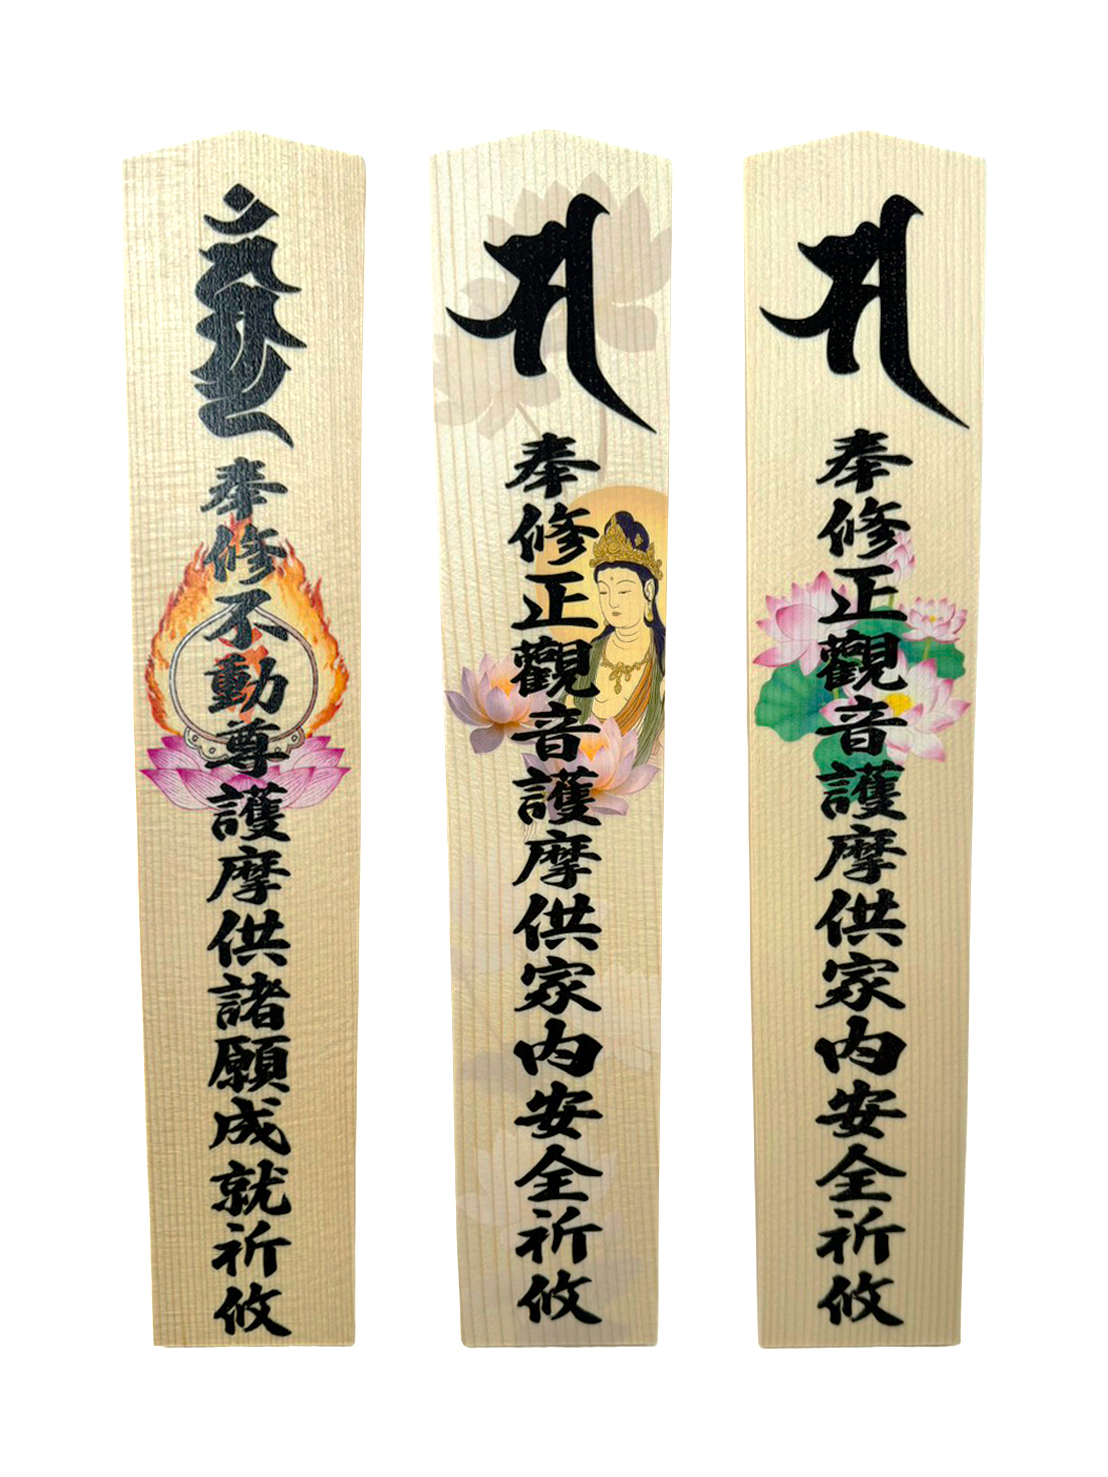 𑖮𑖿𑖦𑖯𑖽
奉修不動尊護摩供諸願成就祈攸
𑖭
奉修正觀音護摩供家内安全祈攸
𑖭
奉修正觀音護摩供家内安全祈攸